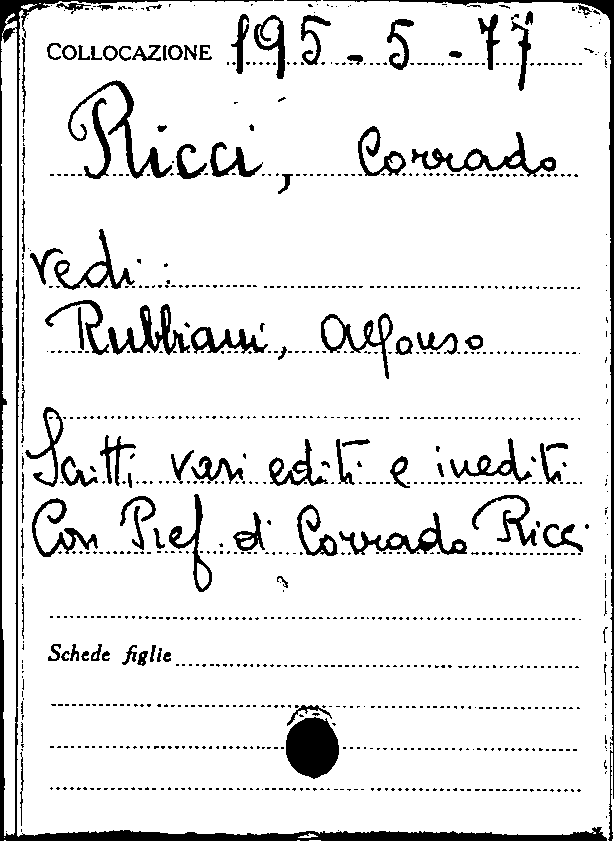 COLLOCAZIONE 195-5-77
Ricci, Corrado
vedi:
Rubbiani, Alfonso
Scritti vari editi e inediti
Con Pref. di Corrado Ricci
Schede figlie